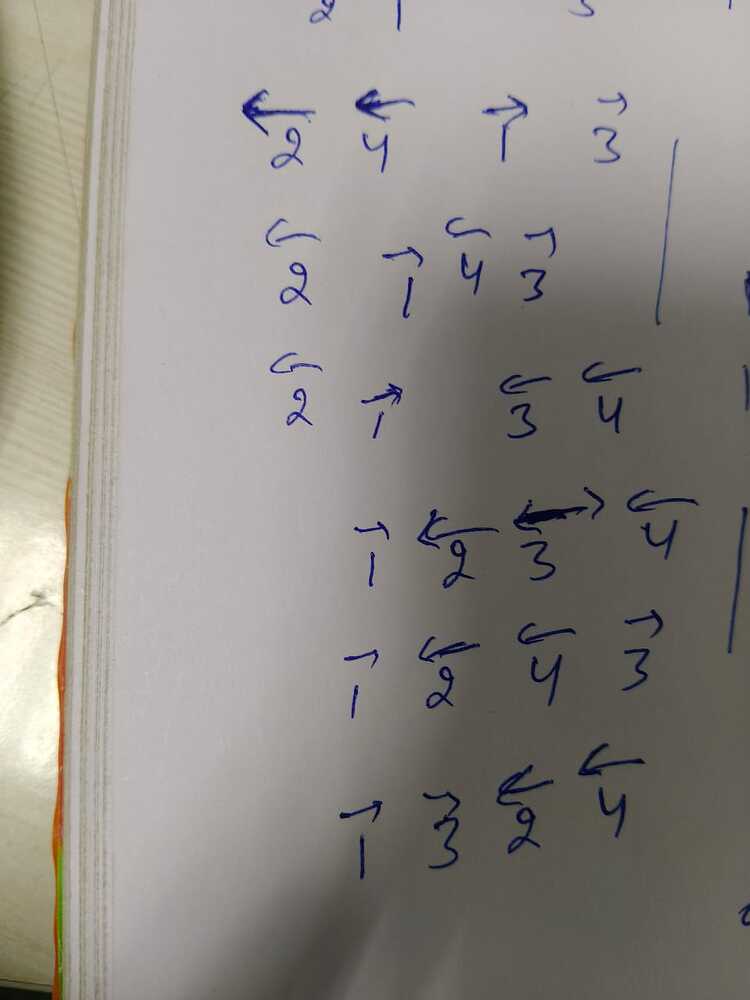 2 1 3
← ← → →
2 4 1 3
← → ← →
2 1 4 3
← → ← ←
2 1 3 4
→ ← ↔ ←
1 2 3 4
→ ← ← →
1 2 4 3
→ → ← ←
1 3 2 4